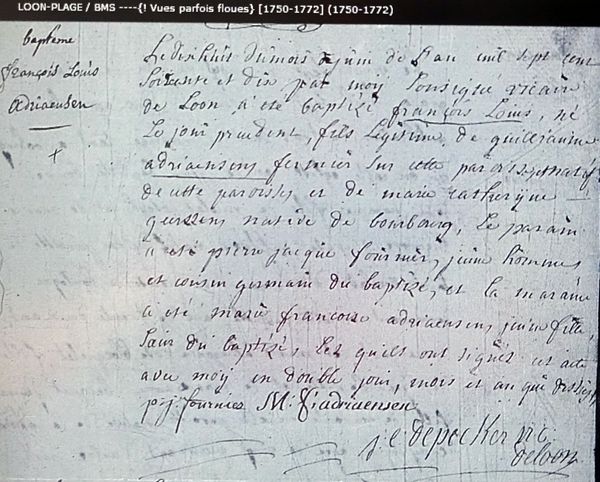 LOON-PLAGE / BMS ----{! Vues parfois floues} [1750-1772] (1750-1772)
bapteme
françois Louis
adriaensen
Le dix huit du mois de juin de l'an mil sept cent
Soixante et dix par moy Soussigné vicair
de Loon a été baptizé françois Louis, né
Le jour precedent, fils Legitime de guilljaume
adriaensens fermier sur cette paroisse, natif
de cette paroisse et de marie catherine
native de bourbourg, Le parain
a été pierre jacque fournier, jeune homme
et cousin germain du baptizé, et la maraine
a été marie francoise adriaensen, jeune fille,
Sœur du baptizé, Les quels ont signés cet acte
avec moy en double jour, mois et an que dessus,
p j fournier M. f adriaensen
j. e depecker
de loon